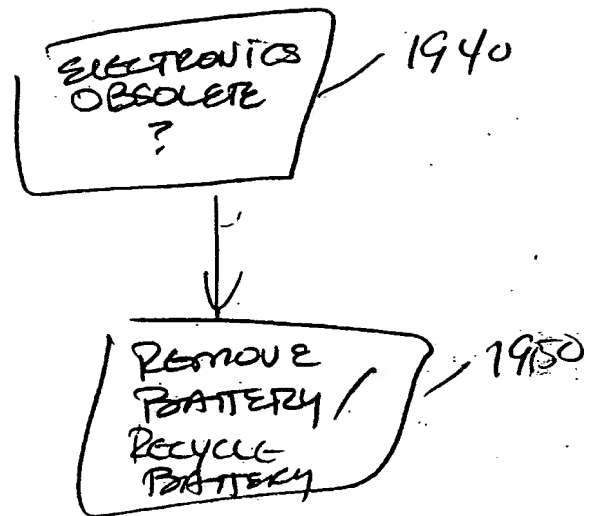 ELECTRONICS
OBSOLETE
?
1940
REMOVE
BATTERY/
RECYCLE
BATTERY
1950